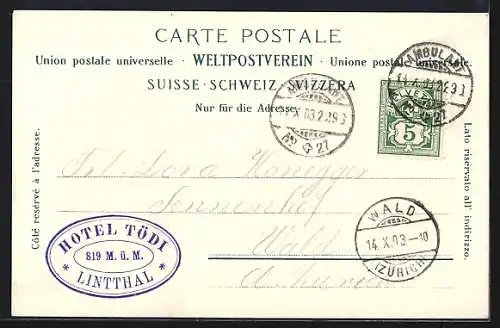 CARTE POSTALE
Union postale universelle · WELTPOSTVEREIN · Unione postale universale.
SUISSE · SCHWEIZ · SVIZZERA
Nur für die Adresse.
AMBULANT
14 X 03 2 29
No 27
AMBULANT
14 X 03 229
No 27
5
Côté reservé à l'adresse.
Lato riservato all' indirizzo.
Frl. Dora Honegger
Sonnenhof
Wald
Ct. Zürich
WALD
14. X. 03.-10
(ZÜRICH)
HOTEL TÖDI
819 M. ü. M.
* LINTTHAL *